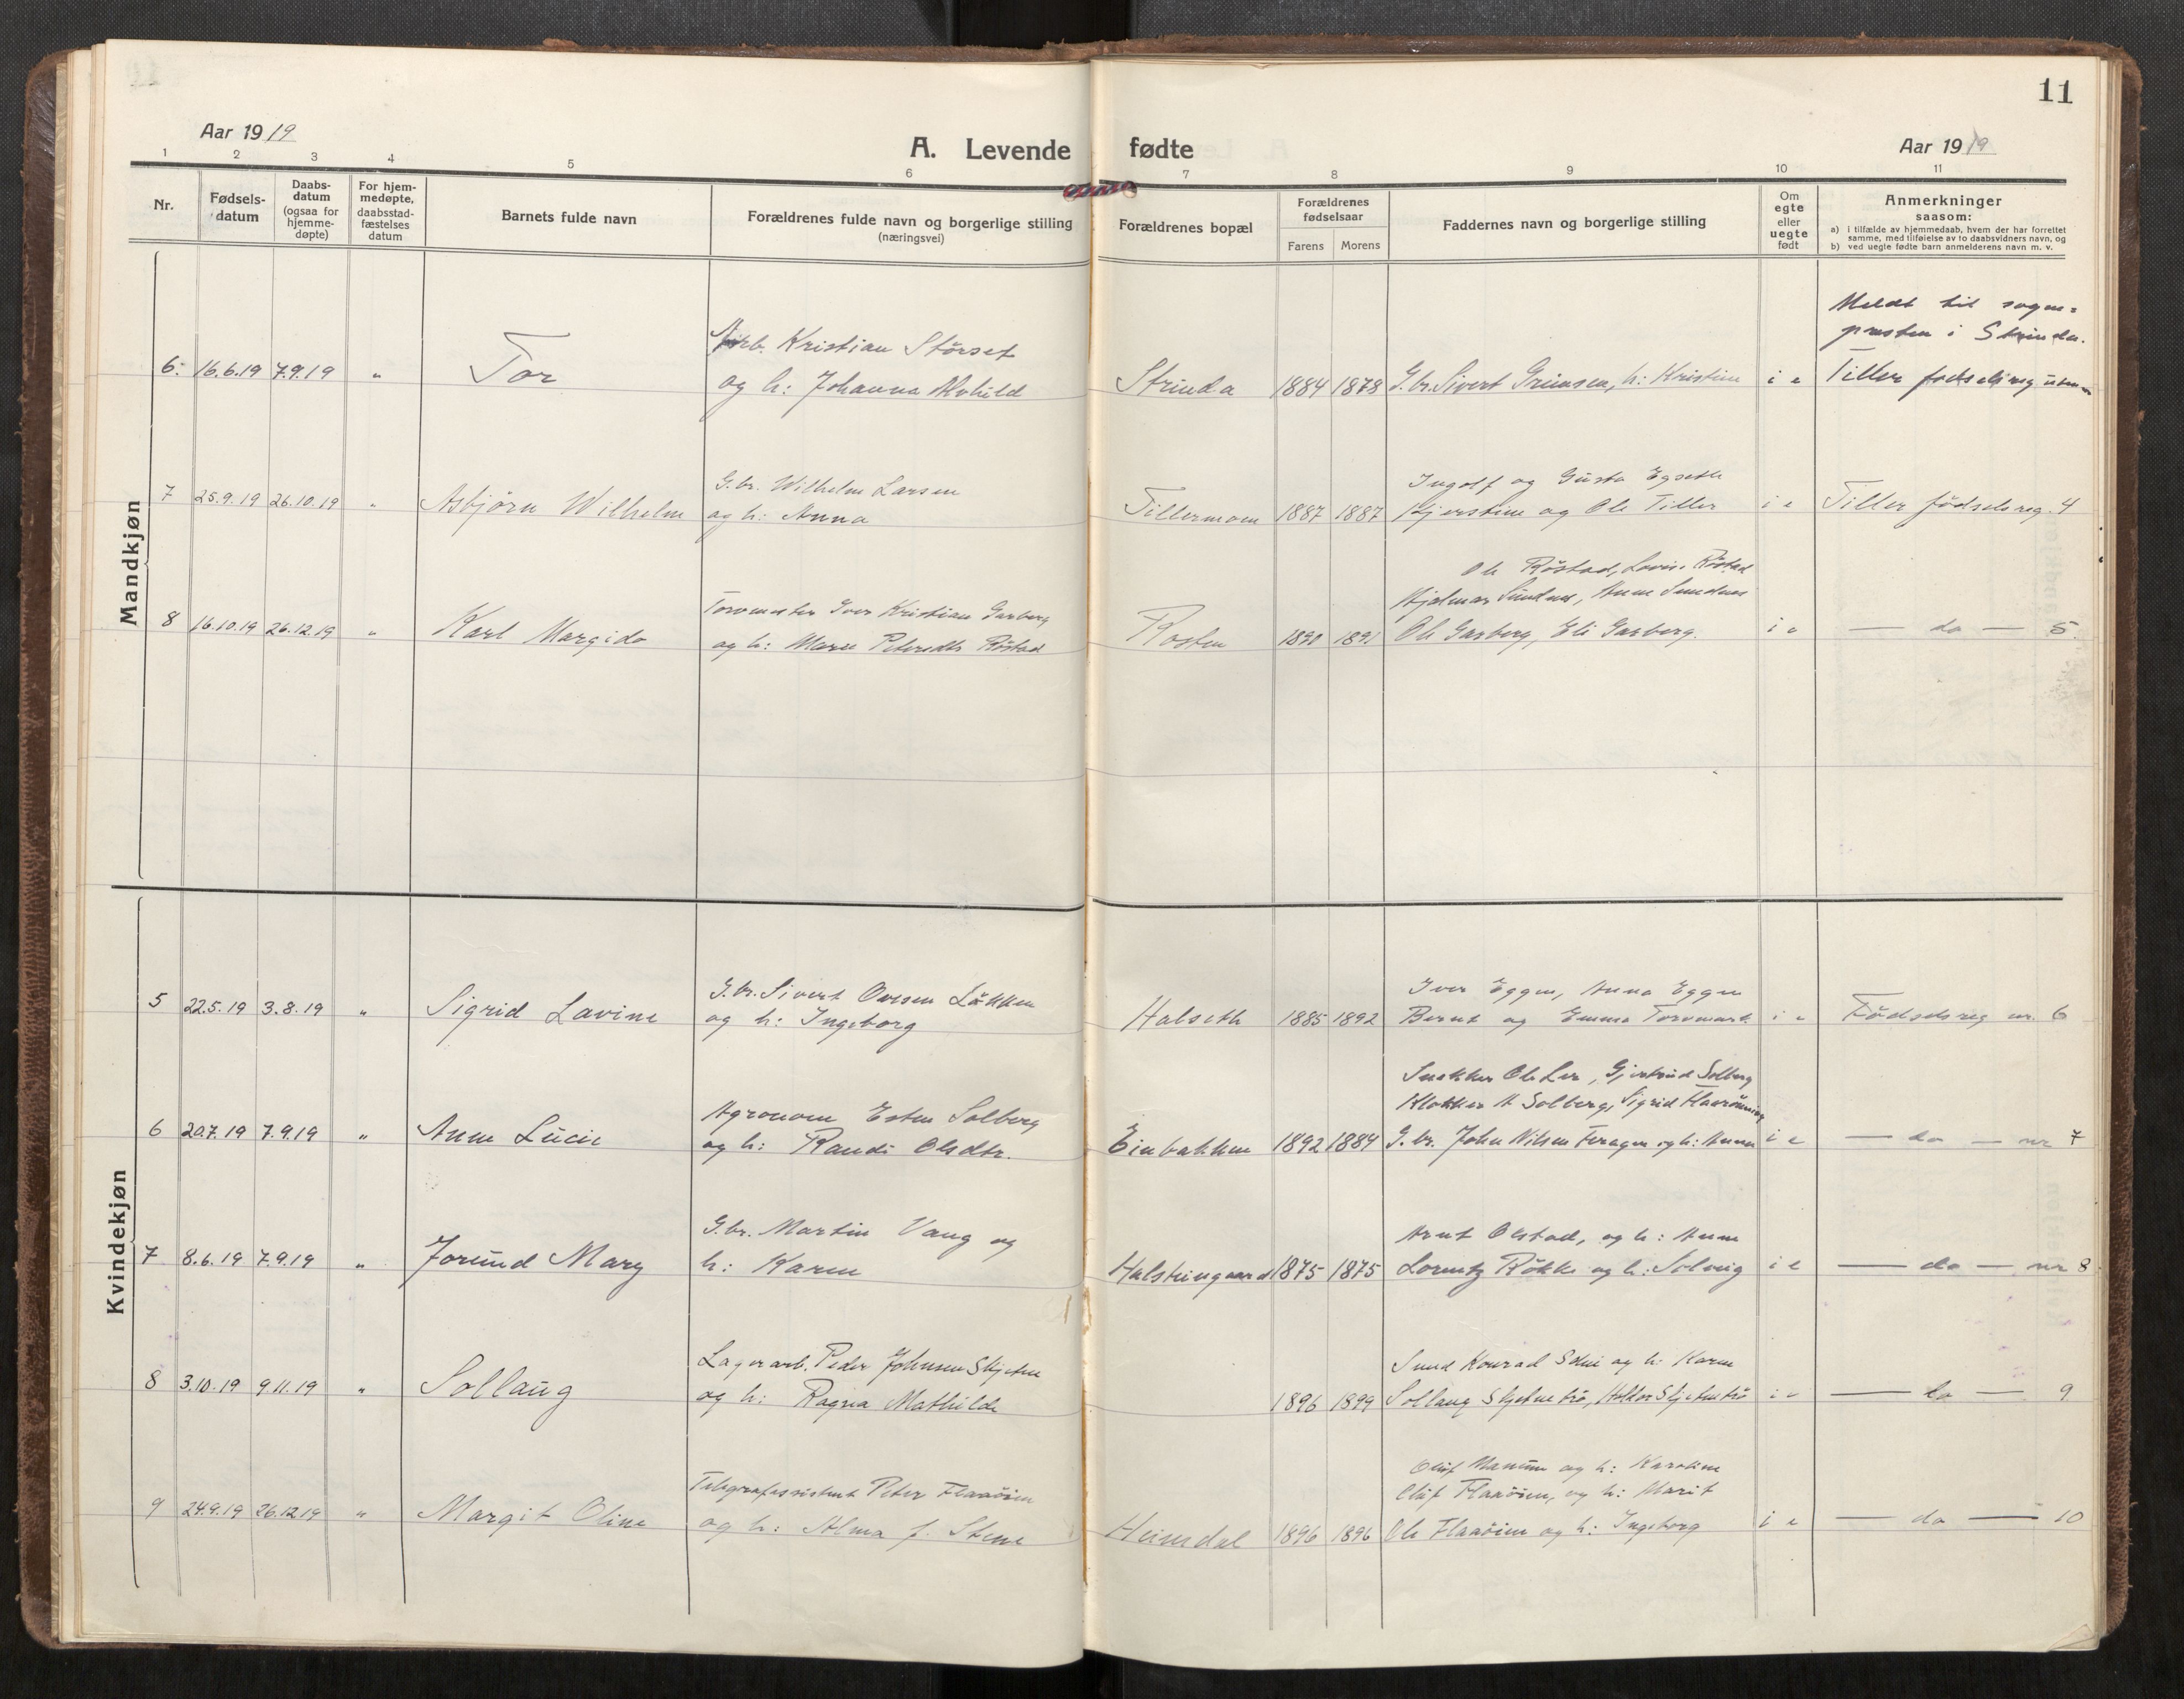 11
Aar 1919
A. Levende fødte
Aar 1919
1 2 3 4 5 6 7 8 9 10 11
Nr.
Fødselsdatum
Daabsdatum (ogsaa for hjemmedøpte)
For hjemmedøpte, daabsstadfæstelses datum
Barnets fulde navn
Forældrenes fulde navn og borgerlige stilling
(næringsvei)
Forældrenes bopæl
Forældrenes fødselsaar
Farens Morens
Faddernes navn og borgerlige stilling
Om egte eller uegte født
Anmerkninger
saasom:
a) i tilfælde av hjemmedaab, hvem der har forrettet
samme, med tilføielse av to daabsvidners navn, og
b) ved uegte fødte barn anmelderens navn m. v.
Mandkjøn
Meldt til sogne=
Arb. Kristian Störset presten i Strinda.
6. 16.6.19 7.9.19 " Tor og h: Johanna Strinda 1884 1878 G.br. Sivert Grimsen, h: Kristine i e Tiller fødselsreg
G.br. Wilhelm Larsen Ingolf og Gusta Egseth
7 25.9.19 26.10.19 " Asbjörn Wilhelm og h: Anna Tillermoen 1887 1887 Kjerstine og Ole Tiller i e Tiller födselsreg. 4
Ole Röstad, Lovise Röstad
Torvmester Iver Kristian Garberg Hjalmar Sundnes, Anne Sundnes
8 16.10.19 26.12.19 " Karl Margido og h: Marie Röstad Rosten 1890 1891 Ole Garberg, Eli Garberg. i e — do — 5.
Kvindekjøn
G.br. Sivert Ovesen Løkken Iver Eggen, Anna Eggen
5 22.5.19 3.8.19 " Sigrid Lavine og h: Ingeborg Halseth 1885 1892 Bernt og Emma Torvmark i e Födselsreg nr. 6
Snekker Ole Ler, Gjertrud Solberg
Agronom Esten Solberg Klokker A Solberg, Sigrid
6 20.7.19 7.9.19 " Anne Lucie og h: Randi Olsdtr. Einbakken 1892 1889 G.br. John Nilsen og h: Anna i e — do — nr 7
G.br. Martin Vang og Arnt Olstad, og h: Anne
7 8.6.19 7.9.19 " Jorund Mary h: Karen Halsteingaard 1875 1875 Lorentz Rökke og h: Solveig i e — do — nr 8
Lagerarb. Peder Johnsen Skjetne Konrad og h: Karen
8 3.10.19 9.11.19 " Sollaug og h: Ragna Mathilde 1896 1899 Sollaug Skjetnetrø, i e — do — 9
Oluf og h: Karoline
Telegrafassistent Peter Flaaöien Oluf Flaaöien, og h: Marit
9 24.9.19 26.12.19 " Margit Oline og h: Alma f. Stene Heimdal 1896 1896 Ole Flaaöien og h: Ingeborg i e — do — 10